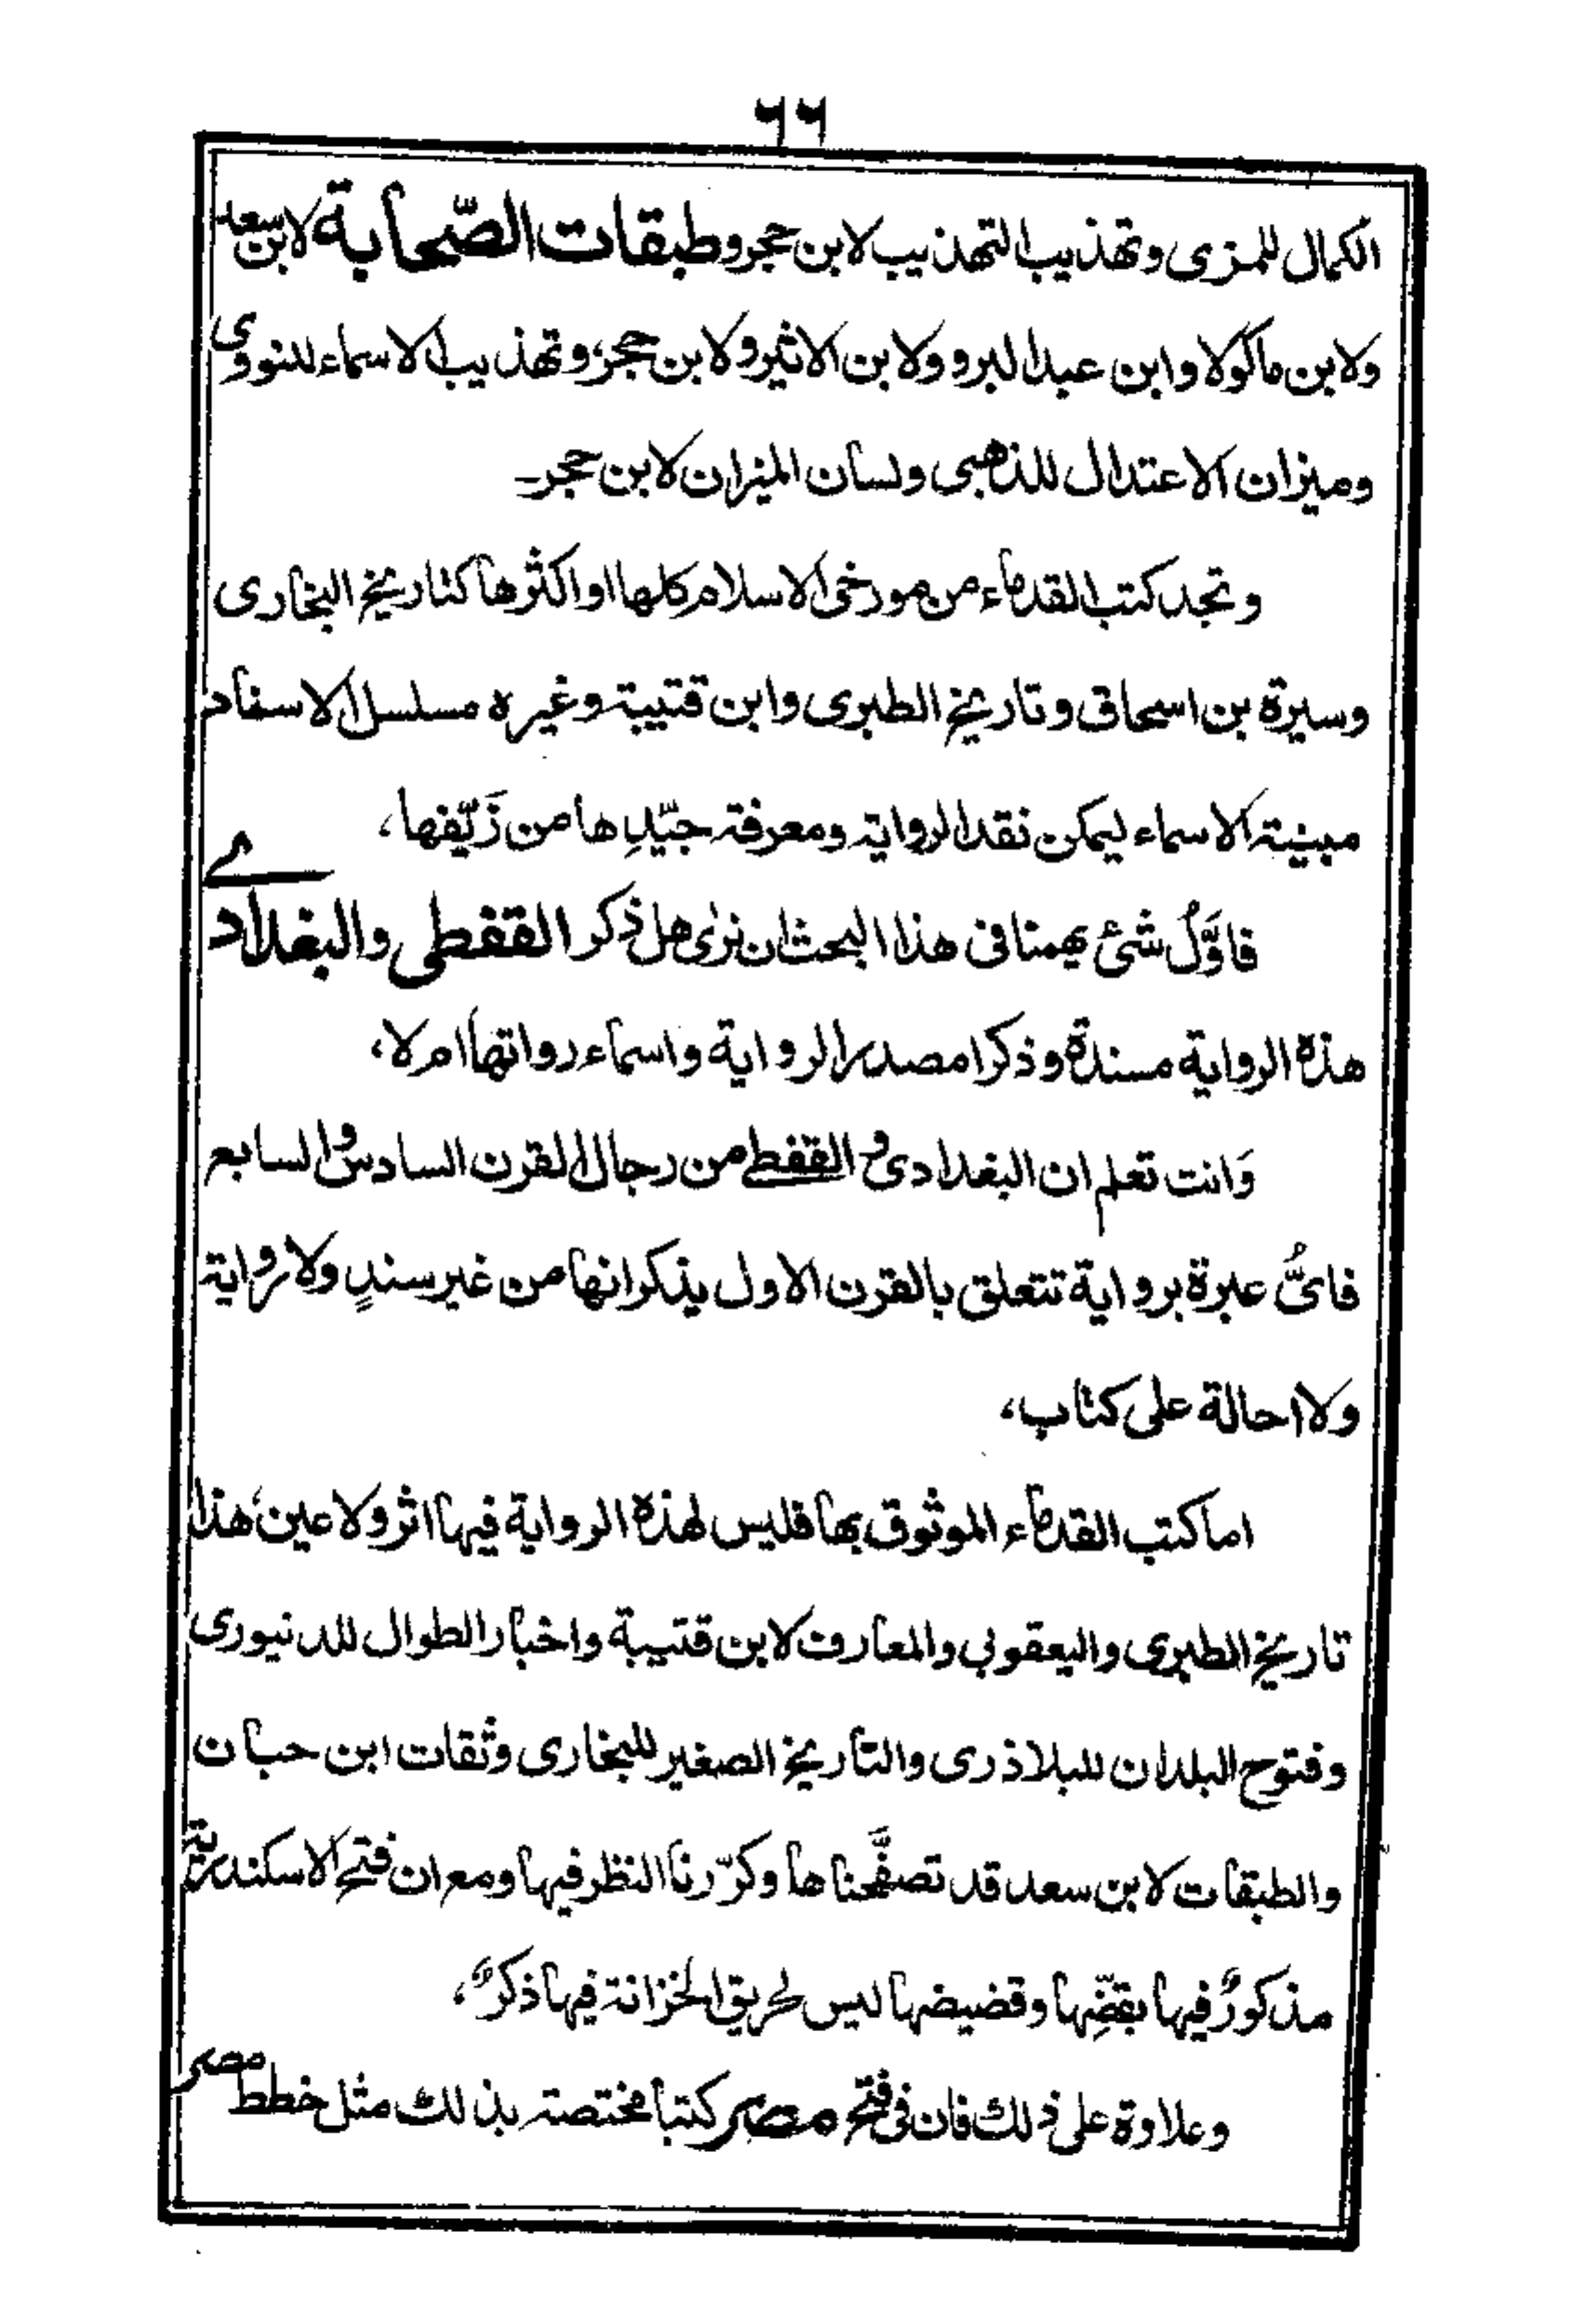 ٦٦
الكمال للمزى وتهذيب التهذيب لابن حجر وطبقات الصّحابة لابن سعد
ولابن ماكولا وابن عبد البرو ولابن الاثير ولابن حجر، وتهذيب الاسماء للنووى
وميزان الاعتدال للذهبى ولسان الميزان لابن حجر۔
وتجد كتب القدماء من مورخى الاسلام كلها او اكثرها كتاريخ البخارى
وسيرة بن اسحاق وتاريخ الطبرى وابن قتيبة وغيره مسلسل الاسناد
مبينة الاسماء ليمكن نقد الرواية ومعرفة جيّدِها من زَيّفها،
فاوَّلُ شئ يهمنا فى هذا البحث ان نرىٰ هل ذكر القفطى والبغدادے
هذه الرواية مسندة وذكرا مصدر الرواية واسماء رواتها ام لا،
وَانت تعلم ان البغدادى و القفطے من رجال القرن السادس والسابع
فاىُّ عبرة برواية تتعلق بالقرن الاول يذكرانها من غير سندٍ ولا رواية
ولا احالة على كتاب،
اما كتب القدماء الموثوق بها فليس لهذه الرواية فيها اثر ولا عين، هذا
تاريخ الطبرى واليعقوبى والمعارف لابن قتيبة واخبار الطوال للدنيورى
وفتوح البلدان للبلاذرى والتاريخ الصغير للبخارى وثقات ابن حبان
والطبقات لابن سعد قد تصفَّحناها وكرّرنا النظر فيها ومع ان فتح الاسكندرية
مذكورٌ فيها بقضِّها وقضيضها ليس لحريق الخزانة فيها ذكرٌ،
وعلاوة على ذلك فان فى فتح مصر كتبا مختصة بذلك مثل خطط مصر